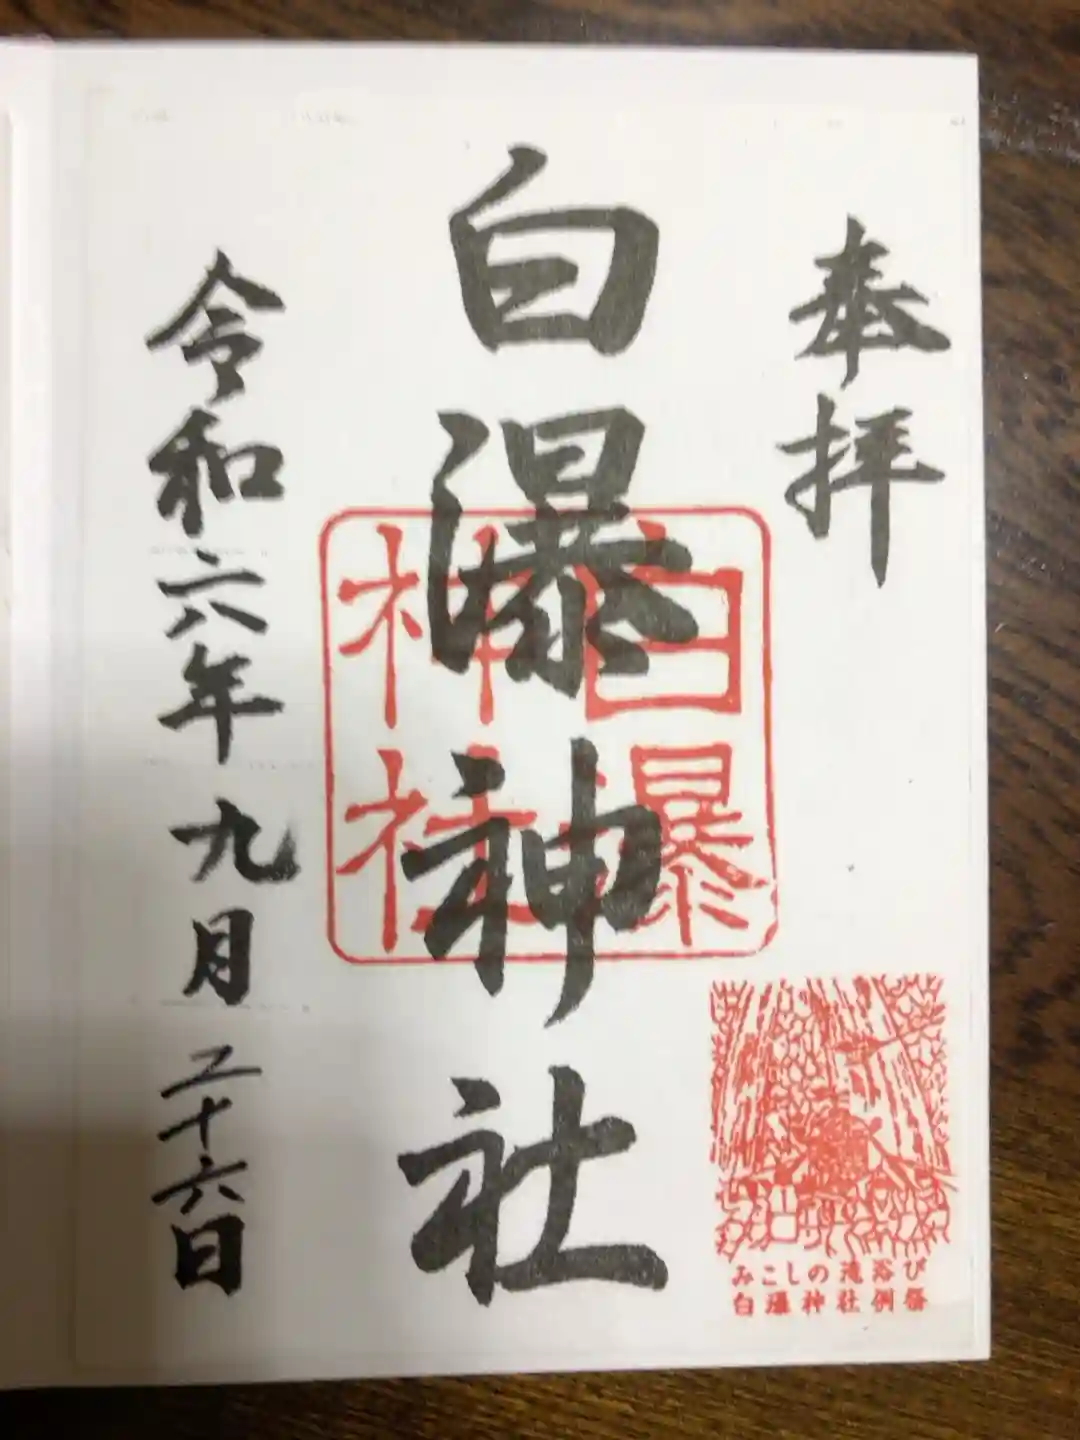 奉拝
白瀑神社
白瀑
神社
みこしの滝浴び
白瀑神社例祭
令和六年九月二十六日